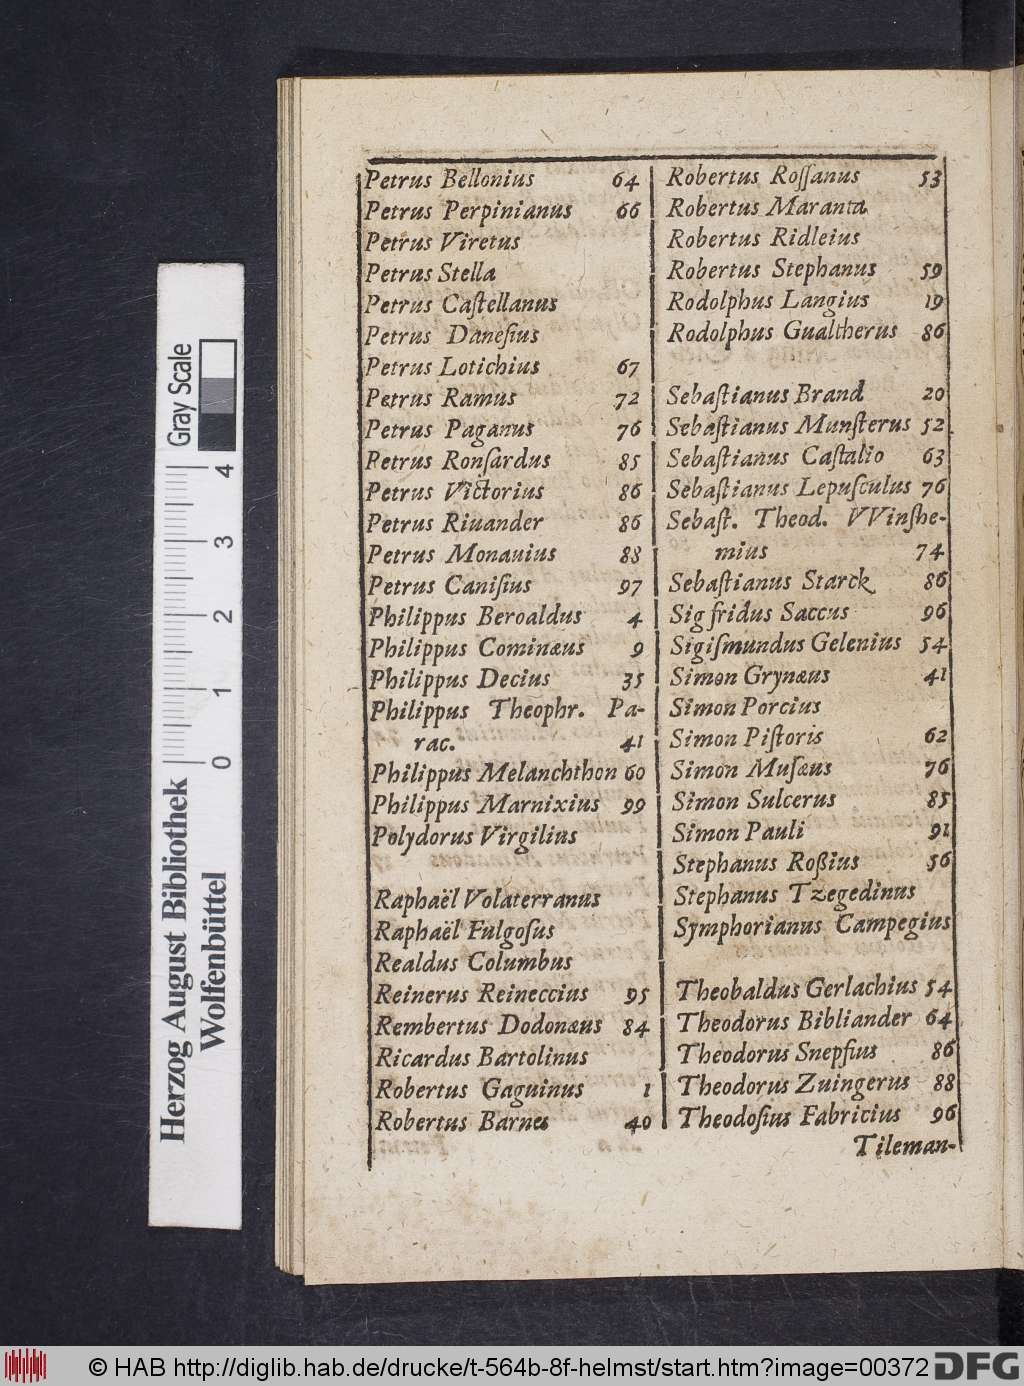 Petrus Bellonius 64
Petrus Perpinianus 66
Petrus Viretus
Petrus Stella
Petrus Caſtellanus
Petrus Daneſius
Petrus Lotichius 67
Petrus Ramus 72
Petrus Paganus 76
Petrus Ronſardus 85
Petrus Victorius 86
Petrus Riuander 86
Petrus Monauius 88
Petrus Caniſius 97
Philippus Beroaldus 4
Philippus Cominæus 9
Philippus Decius 35
Philippus Theophr. Pa-
rac. 41
Philippus Melanchthon 60
Philippus Marnixius 99
Polydorus Virgilius
Raphaël Volaterranus
Raphaël Fulgoſus
Realdus Columbus
Reinerus Reineccius 95
Rembertus Dodonæus 84
Ricardus Bartolinus
Robertus Gaguinus 1
Robertus Barnes 40
Robertus Roſſanus 53
Robertus Maranta
Robertus Ridleius
Robertus Stephanus 59
Rodolphus Langius 19
Rodolphus Gualtherus 86
Sebaſtianus Brand 20
Sebaſtianus Munſterus 52
Sebaſtianus Caſtalio 63
Sebaſtianus Lepuſculus 76
Sebaſt. Theod. VVinſhe-
mius 74
Sebaſtianus Starck 86
Sigfridus Saccus 96
Sigiſmundus Gelenius 54
Simon Grynæus 41
Simon Porcius
Simon Piſtoris 62
Simon Muſæus 76
Simon Sulcerus 85
Simon Pauli 91
Stephanus Roßius 56
Stephanus Tzegedinus
Symphorianus Campegius
Theobaldus Gerlachius 54
Theodorus Bibliander 64
Theodorus Snepfius 86
Theodorus Zuingerus 88
Theodoſius Fabricius 96
Tileman-
Herzog August Bibliothek
Wolfenbüttel
0 1 2 3 4
Gray Scale
© HAB http://diglib.hab.de/drucke/t-564b-8f-helmst/start.htm?image=00372
DFG